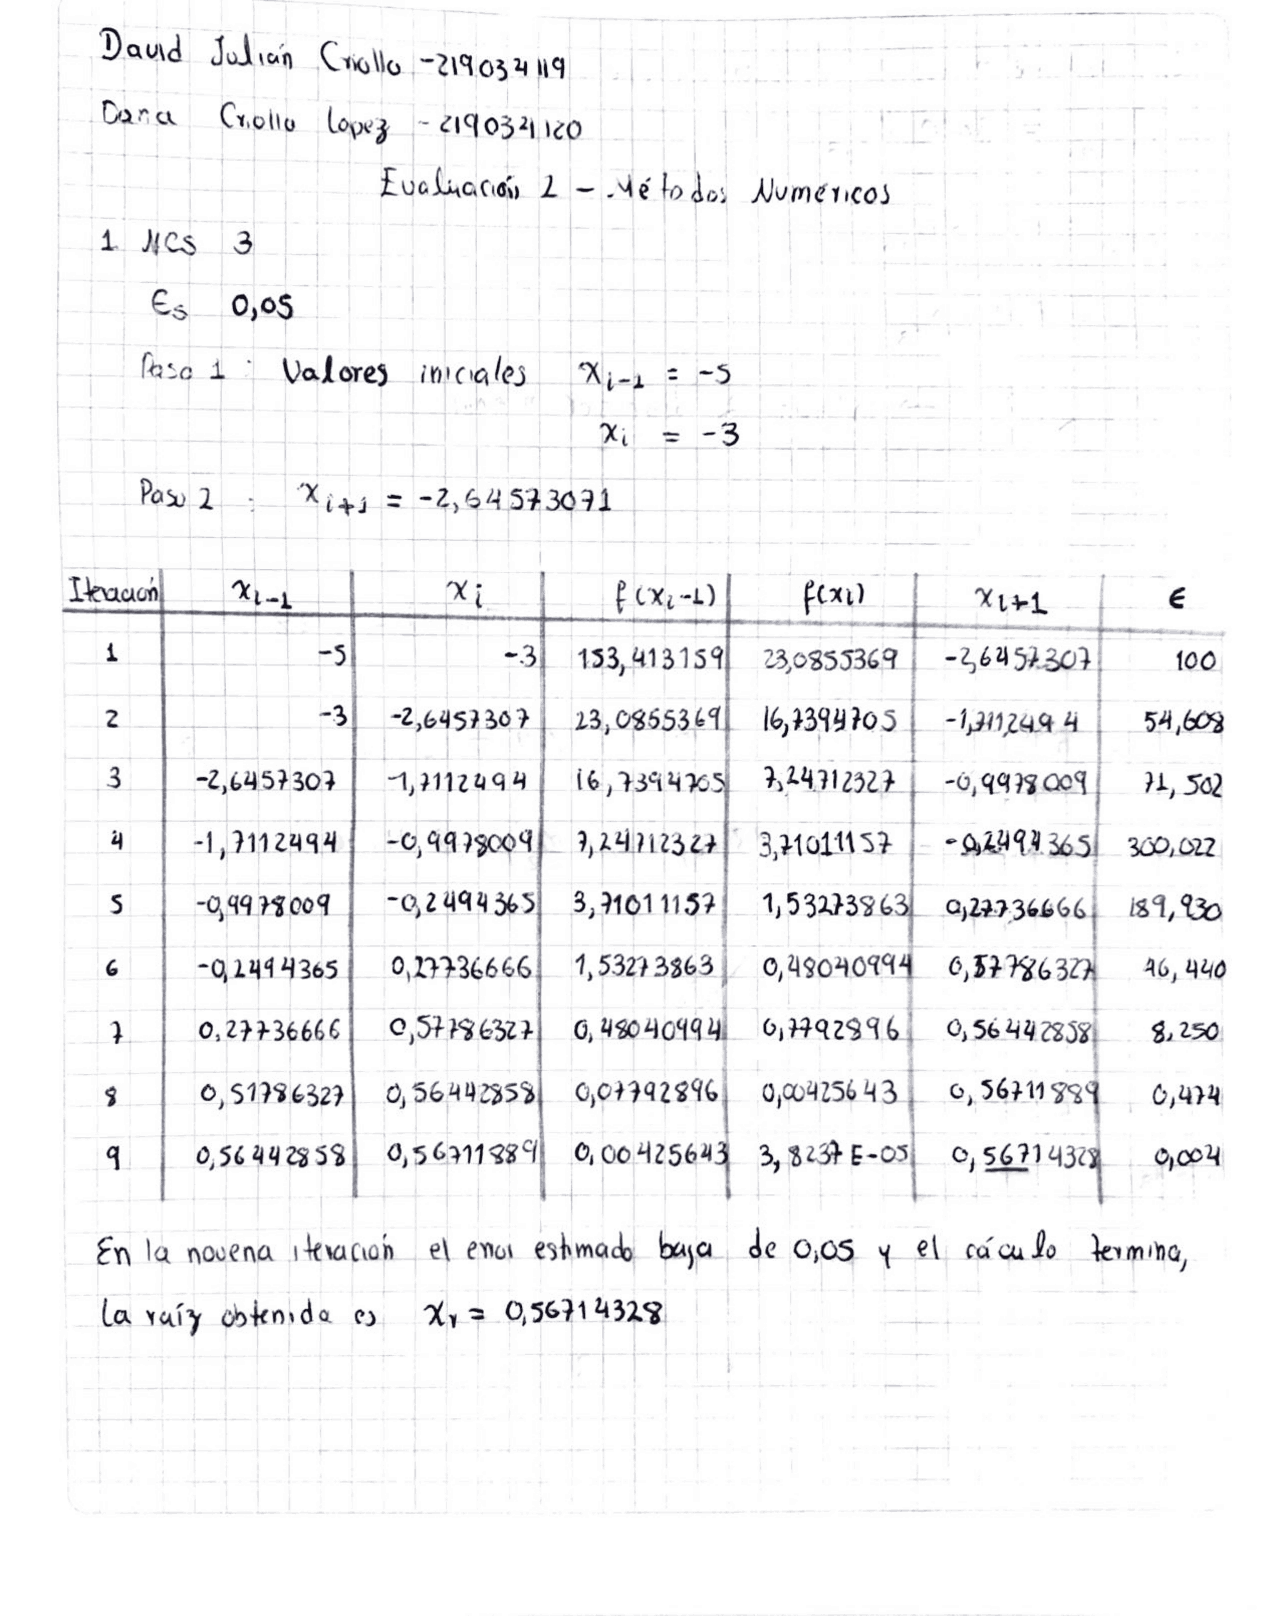 David Julián Criollo - 219034119
Dana Criollo Lopez - 219034120
Evaluación 2 - Métodos Numéricos
1 NCS 3
Es 0,05
Paso 1 : Valores iniciales xi-1 = -5
xi = -3
Paso 2 : xi+1 = -2,64573071
Iteración xi-1 xi f(xi-1) f(xi) xi+1 ε
1 -5 -3 153,413159 23,0855369 -2,6457307 100
2 -3 -2,6457307 23,0855369 16,7394705 -1,7112494 54,608
3 -2,6457307 -1,7112494 16,7394705 7,24712327 -0,9978009 71,502
4 -1,7112494 -0,9978009 7,24712327 3,71011157 -0,2494365 300,022
5 -0,9978009 -0,2494365 3,71011157 1,53273863 0,27736666 189,930
6 -0,2494365 0,27736666 1,53273863 0,48040994 0,57786327 46,440
7 0,27736666 0,57786327 0,48040994 0,7792896 0,56442858 8,250
8 0,51786327 0,56442858 0,07792896 0,00425643 0,56711889 0,474
9 0,56442858 0,56711889 0,00425643 3,8237 E-05 0,56714328 0,004
En la novena iteración el error estimado baja de 0,05 y el cáculo termina,
la raíz obtenida es xr = 0,56714328